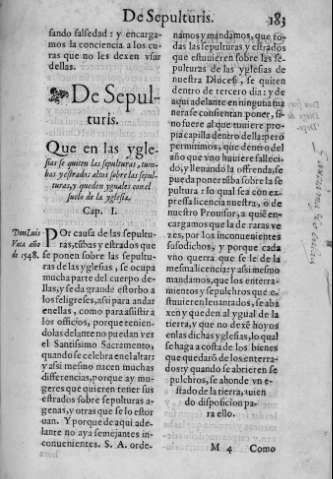 De Sepulturis. 183
sando falsedad: y encarga-
mos la conciencia a los cu-
ras que no les dexen vsar
dellas.
De Sepul-
turis.
Que en las ygle-
sias se quiten las sepulturas, tum-
bas y estrados altos sobre las sepul-
turas, y queden yguales con el
suelo de la yglesia.
Cap. I.
Don Luis
Vaca año
de 1548.
POr causa de las sepultu-
ras, tũbas y estrados que
se ponen sobre las sepultu-
ras de las yglesias, se ocupa
mucha parte del cuerpo de-
llas, y se da grande estorbo a
los feligreses, assi para andar
en ellas, como para assistir a
los officios, porque tenien-
dolas delante no puedan ver
el Santissimo Sacramento,
quando se celebra en el altar:
y assi mesmo nacen muchas
differencias, porque ay mu-
geres que quieren tener sus
estrados sobre sepulturas a-
genas, y otras que se lo estor
uan. Y porque de aqui ade-
lante no aya semejantes in-
conuenientes. S. A. orde-
namos y mandamos, que to-
das las sepulturas, y estrados
que estuuieren sobre las se-
pulturas de las yglesias de
nuestra Diocesi, se quiten
dentro de tercero dia: y de
aqui adelante en ninguna ma
nera se consientan poner, si-
no fuere al que tuuiere pro-
pia capilla dentro della: pero
permitimos, que dentro del
año que vno huuiere falleci-
do, y lleuando la offrenda, se
pueda poner tũba sobre la se
pultura: lo qual sea cõn ex-
pressa licencia nuestra, o de
nuestro Prouisor, a quiẽ en-
cargamos que la de raras ve
zes, por los inconuenientes
susodichos, y porque cada
vno querra que se le de la
mesma licencia: y assi mesmo
mandamos, que los enterra-
mientos y sepulchros que e-
stuuieren leuantados, se aba
xen y queden al ygual de la
tierra, y que no dexẽ hoyos
en las dichas yglesias, lo qual
se haga a costa de los bienes
que quedarõ de los enterra-
dos: y quando se abrieren se
pulchros, se ahonde vn e-
stado de la tierra, auien
do disposicion pa-
ra ello.
M 4 Como